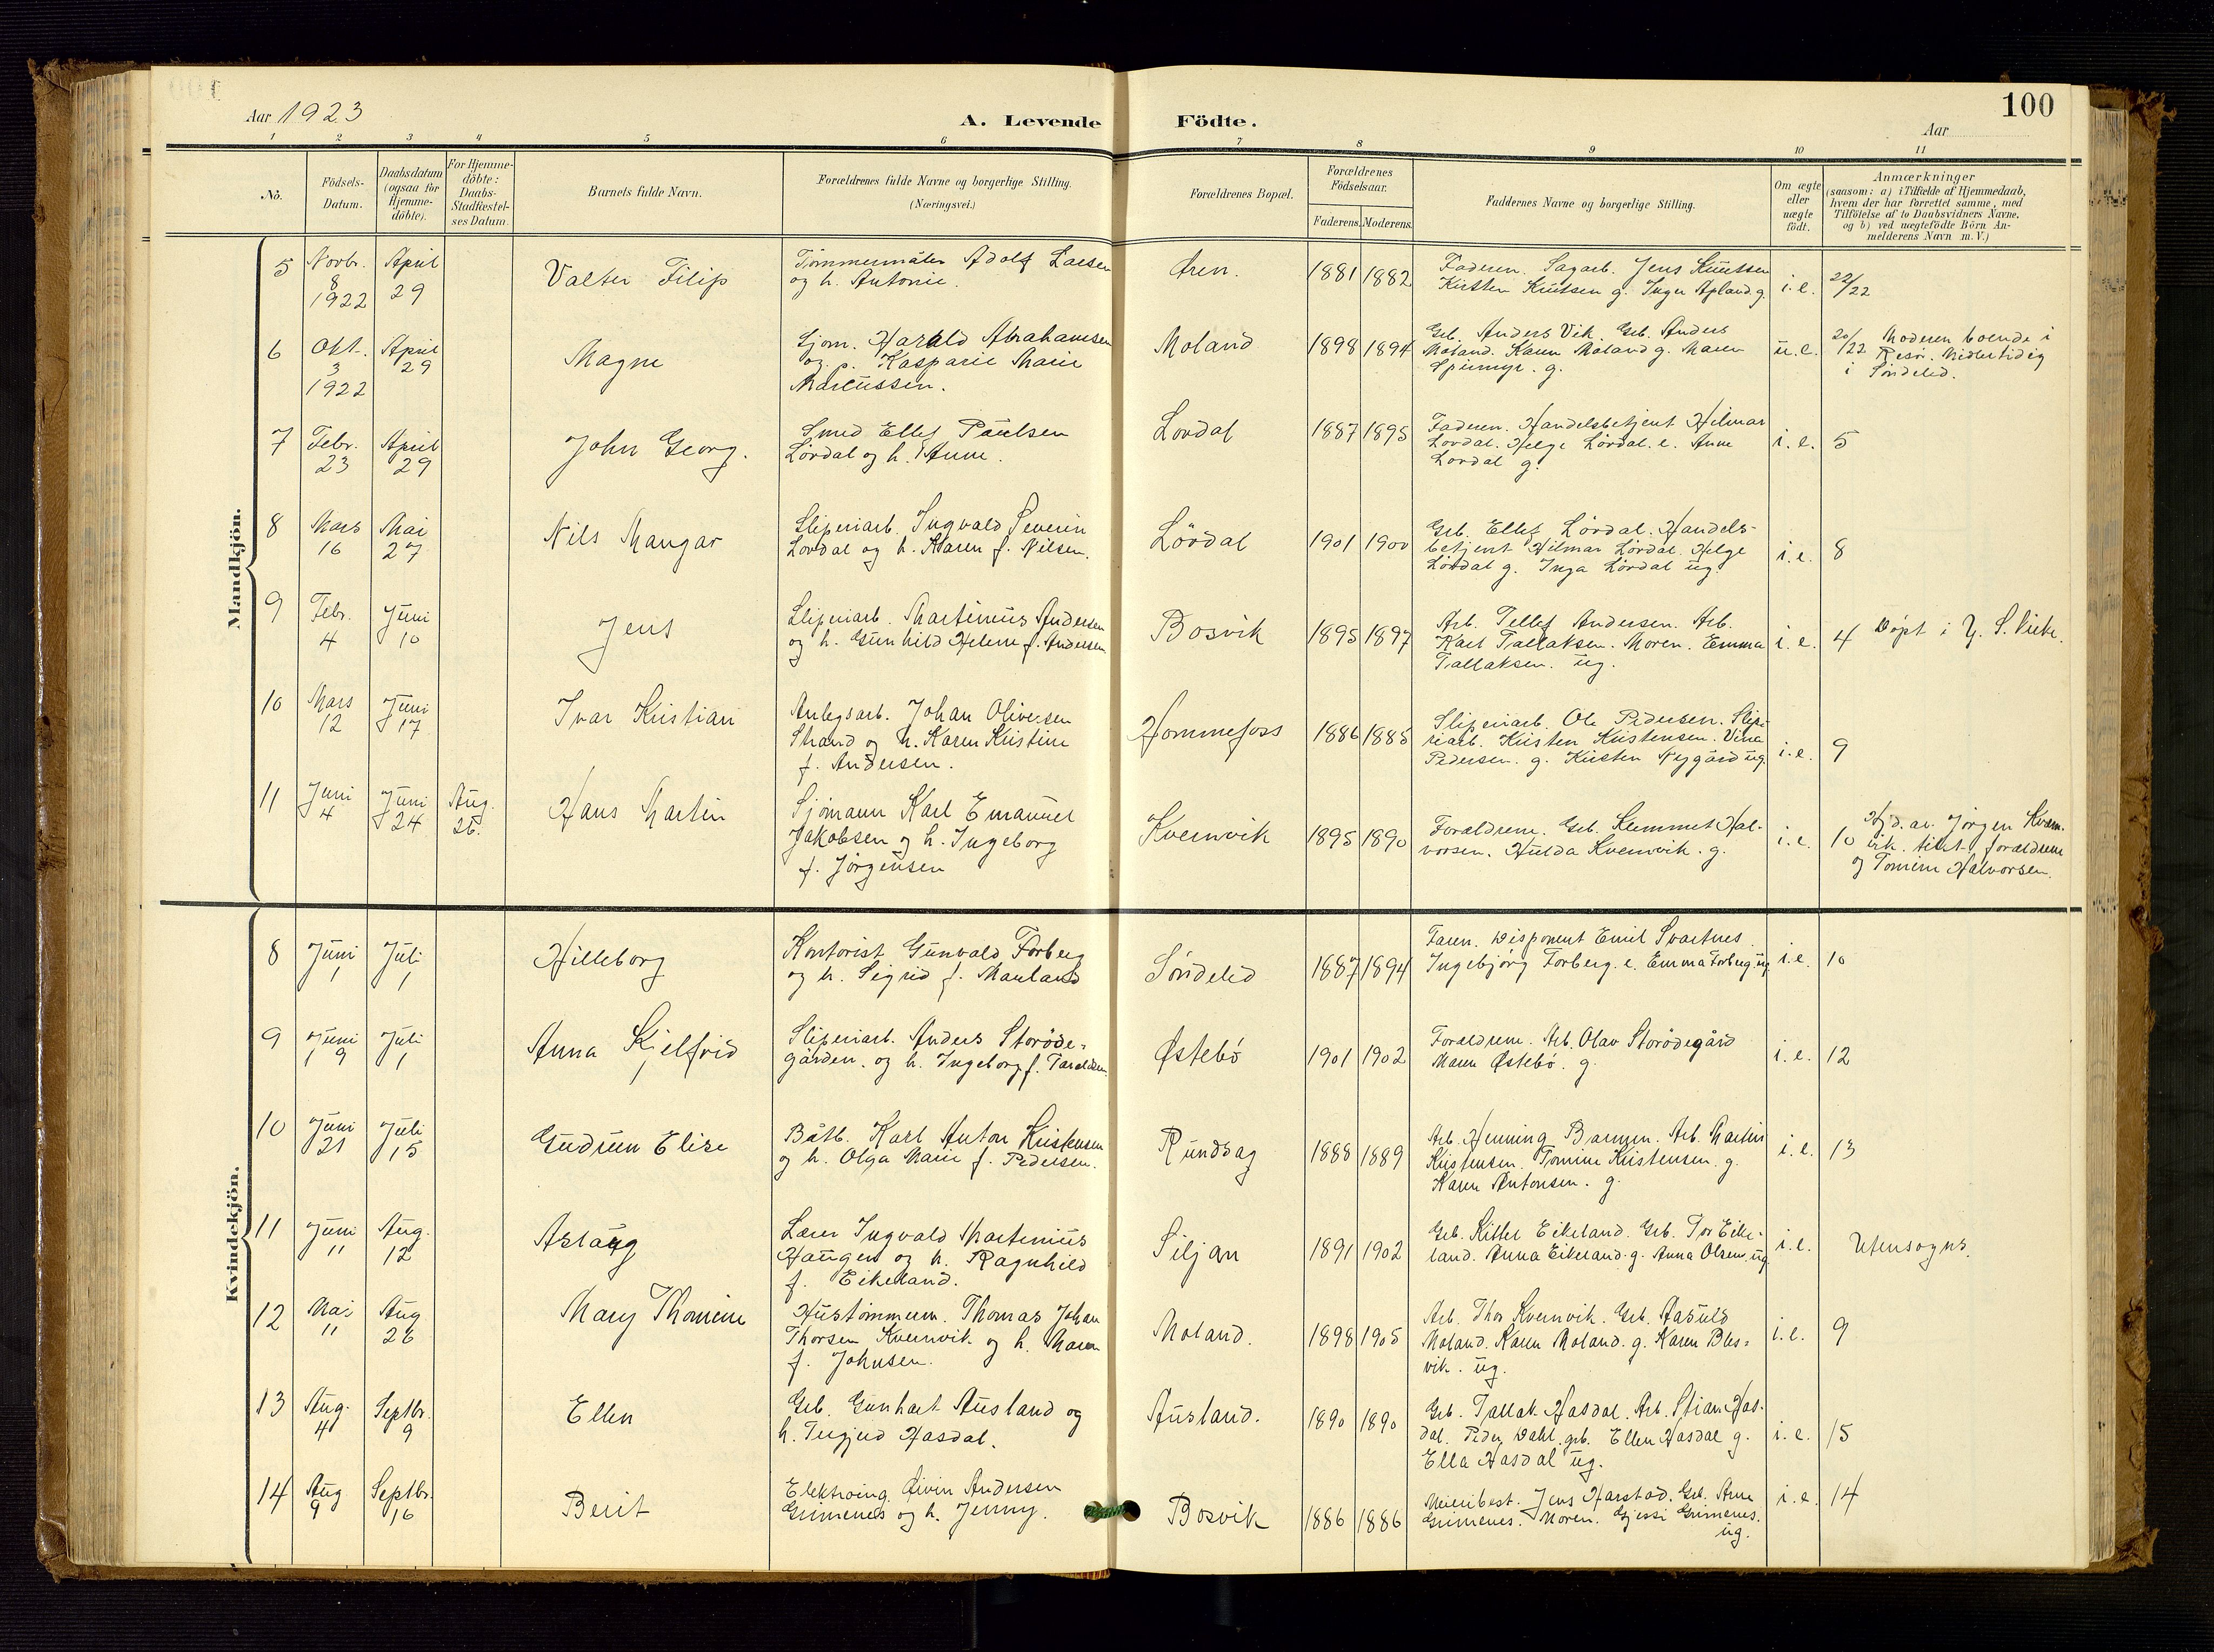 100
Aar 1923
A. Levende Födte.
Aar
1 2 3 4 5 6 7 8 9 10 11
No.
Födsels-
Datum.
Daabsdatum
(ogsaa for
Hjemme-
döbte).
For Hjemme-
döbte:
Daabs-
Stadfæstel-
ses Datum.
Barnets fulde Navn.
Forældrenes fulde Navne og borgerlige Stilling.
(Næringsvei.)
Forældrenes Bopæl.
Forældrenes
Födselsaar.
Faderens. Moderens.
Faddernes Navne og borgerlige Stilling.
Om ægte
eller
uægte
födt.
Anmærkninger
(saasom: a) i Tilfælde af Hjemmedaab,
hvem der har forrettet samme, med
Tilföielse af to Daabsvidners Navne,
og b) ved uægtefödte Börn An-
melderens Navn m. V.)
Mandkjön.
5
Novbr.
8
1922
April
29
Valter Filip
Tömmermåler Adolf Larsen
og h. Antonie.
Øren.
1881 1882
Faderen. Sagarb. Jens Knutsen
Kirsten Knutsen g. Inger Apland g.
i.e.
22/22
6
Okt.
3
1922
April
29
Magne
Sjöm. Harald Abrahamsen
og p. Kasparie Marie
Marcussen.
Moland
1898 1894
Grb. Anders Vik. Grb. Anders
Moland. Karen Moland g. Maren
g.
u.e.
20/22 Moderen boende i
Risör. Midlertidig
i Söndeled.
7
Febr.
23
April
29
John Georg.
Smed Ellef Paulsen
Lördal og h. Anne.
Lövdal
1887 1895
Faderen. Handelsbetjent Hilmar
Lövdal. Helge Lövdal. e. Anne
Lovdal g.
i.e.
5
8
Mars
16
Mai
27
Nils Mangar
Sliperiarb. Ingvald Severin
Lövdal og h. Karen f. Nilsen.
Lövdal
1901 1900
Grb. Ellef Lövdal. Handels-
betjent Hilmar Lövdal. Helge
Lövdal g. Inga Lövdal ug.
i.e.
8
9
Febr.
4
Juni
10
Jens
Sliperiarb. Martinius Andersen
og h. Gunhild Helene f. Andersen
Bosvik
1895 1897
Arb. Tellef Andersen. Arb.
Karl Tallaksen. Moren. Emma
Tallaksen. ug.
i.e.
4 Döpt i
10
Mars
12
Juni
17
Ivar Kristian
Anlegsarb. Johan Oliversen
Strand og h. Karen Kristine
f. Andersen.
Hommefoss
1886 1885
Sliperiarb. Ole Pedersen. Slipe-
riarb. Kristen Kristensen. Vina
Pedersen. g. Kirsten Nygård ug.
i.e.
9
11
Juni
4
Juni
24
Aug.
26.
Hans Martin
Sjömann Karl Emanuel
Jakobsen og h. Ingeborg
f. Jörgensen
Kvernvik
1895 1890
Forældrene. Grb. Klemmet Hal-
vorsen. Hulda Kvernvik. g.
i.e.
10 Hjd. av Jörgen Kvern-
vik. tilst. forældrene
og Tomine Halvorsen.
Kvindekjön.
8
Juni
1
Juli
1
Hilleborg
Kontorist Gunvald Forberg
og h. Sigrid f. Marland
Söndeled
1887 1894
Faren. Disponent Emil Svartnes.
Ingebjörg Forberg. e. Emma Forberg. ug
i.e.
10
9
Juni
9
Juli
1
Anna Kjelfrid
Sliperiarb. Anders Storöde-
gården. og h. Ingeborg f. Taraldsen.
Østebö
1901 1902
Forældrene. Arb. Olav Storödegård
Maren Østebö. g.
i.e.
12
10
Juni
21
Juli
15
Gudrun Elise
Båtb. Karl Anton Kristensen
og h. Olga Marie f. Pedersen.
Rundsag
1888 1889
Arb. Henning Barmen. Arb. Martin
Kristensen. Tomine Kristensen. g.
Karen Antonsen. g.
i.e.
13
11
Juni
11
Aug.
12
Aslaug
Lærer Ingvald Martinius
Haugen og h. Ragnhild
f. Eikeland.
Siljan
1891 1902
Grb. Kittel Eikeland. Grb. Tor Eike-
land. Anna Eikeland. g. Anna Olsen. ug
i.e.
Utensogns.
12
Mai
11
Aug
26
Mary Thomine
Hustömmerm. Thomas Johan
Thorsen Kvernvik og h. Maren
f. Johnsen.
Moland.
1898 1905
Arb. Thor Kvernvik. Grb. Aasuld
Moland. Karen Moland. g. Karen Bles-
vik. ug.
i.e.
9
13
Aug.
4
Septbr.
9
Ellen
Grb. Gunhart Ausland og
h. Hasdal.
Ausland.
1890 1890
Grb. Tallak Hasdal. Arb. Stian Has-
dal. Peder Dahl. grb. Ellen Hasdal g.
Ella Hasdal ug.
i.e.
15
14
Aug
9
Septbr.
16
Berit
Elektroing. Øivin Andersen
Grimenes og h. Jenny.
Bosvik
1886 1886
Meieribest. Jens Harstad. Grb. Arne
Grimenes. Moren. Gjessi Grimenes.
ug.
i.e.
14